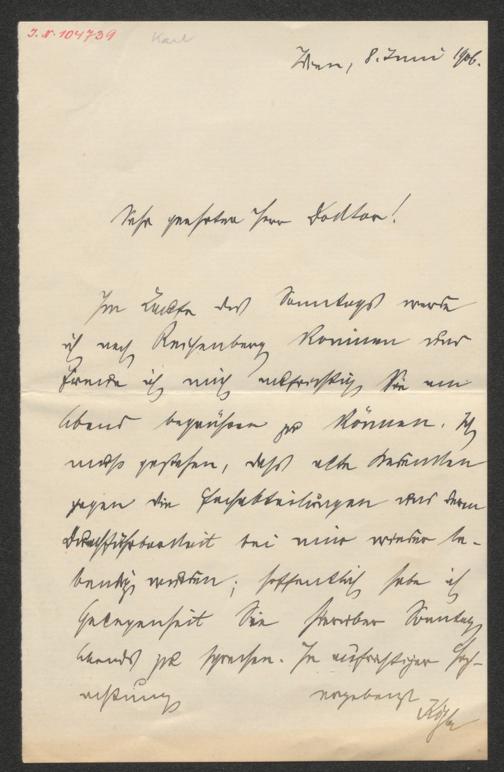 J.N. 104739
Karl
Wien, 8. Juni 1906.
Sehr geehrter Herr Doctor!
Im Laufe des Sonntags werde
ich nach Reichenberg kommen und
freue ich mich aufrichtig Sie am
Abend begrüßen zu können. Ich
muß gestehen, daß alte Bedenken
gegen die Fachabteilungen und deren
Durchführbarkeit bei mir wieder le-
bendig wurden; hoffentlich habe ich
Gelegenheit Sie hierüber Sonntag
Abends zu sprechen. In aufrichtiger Hoch-
achtung ergebenst